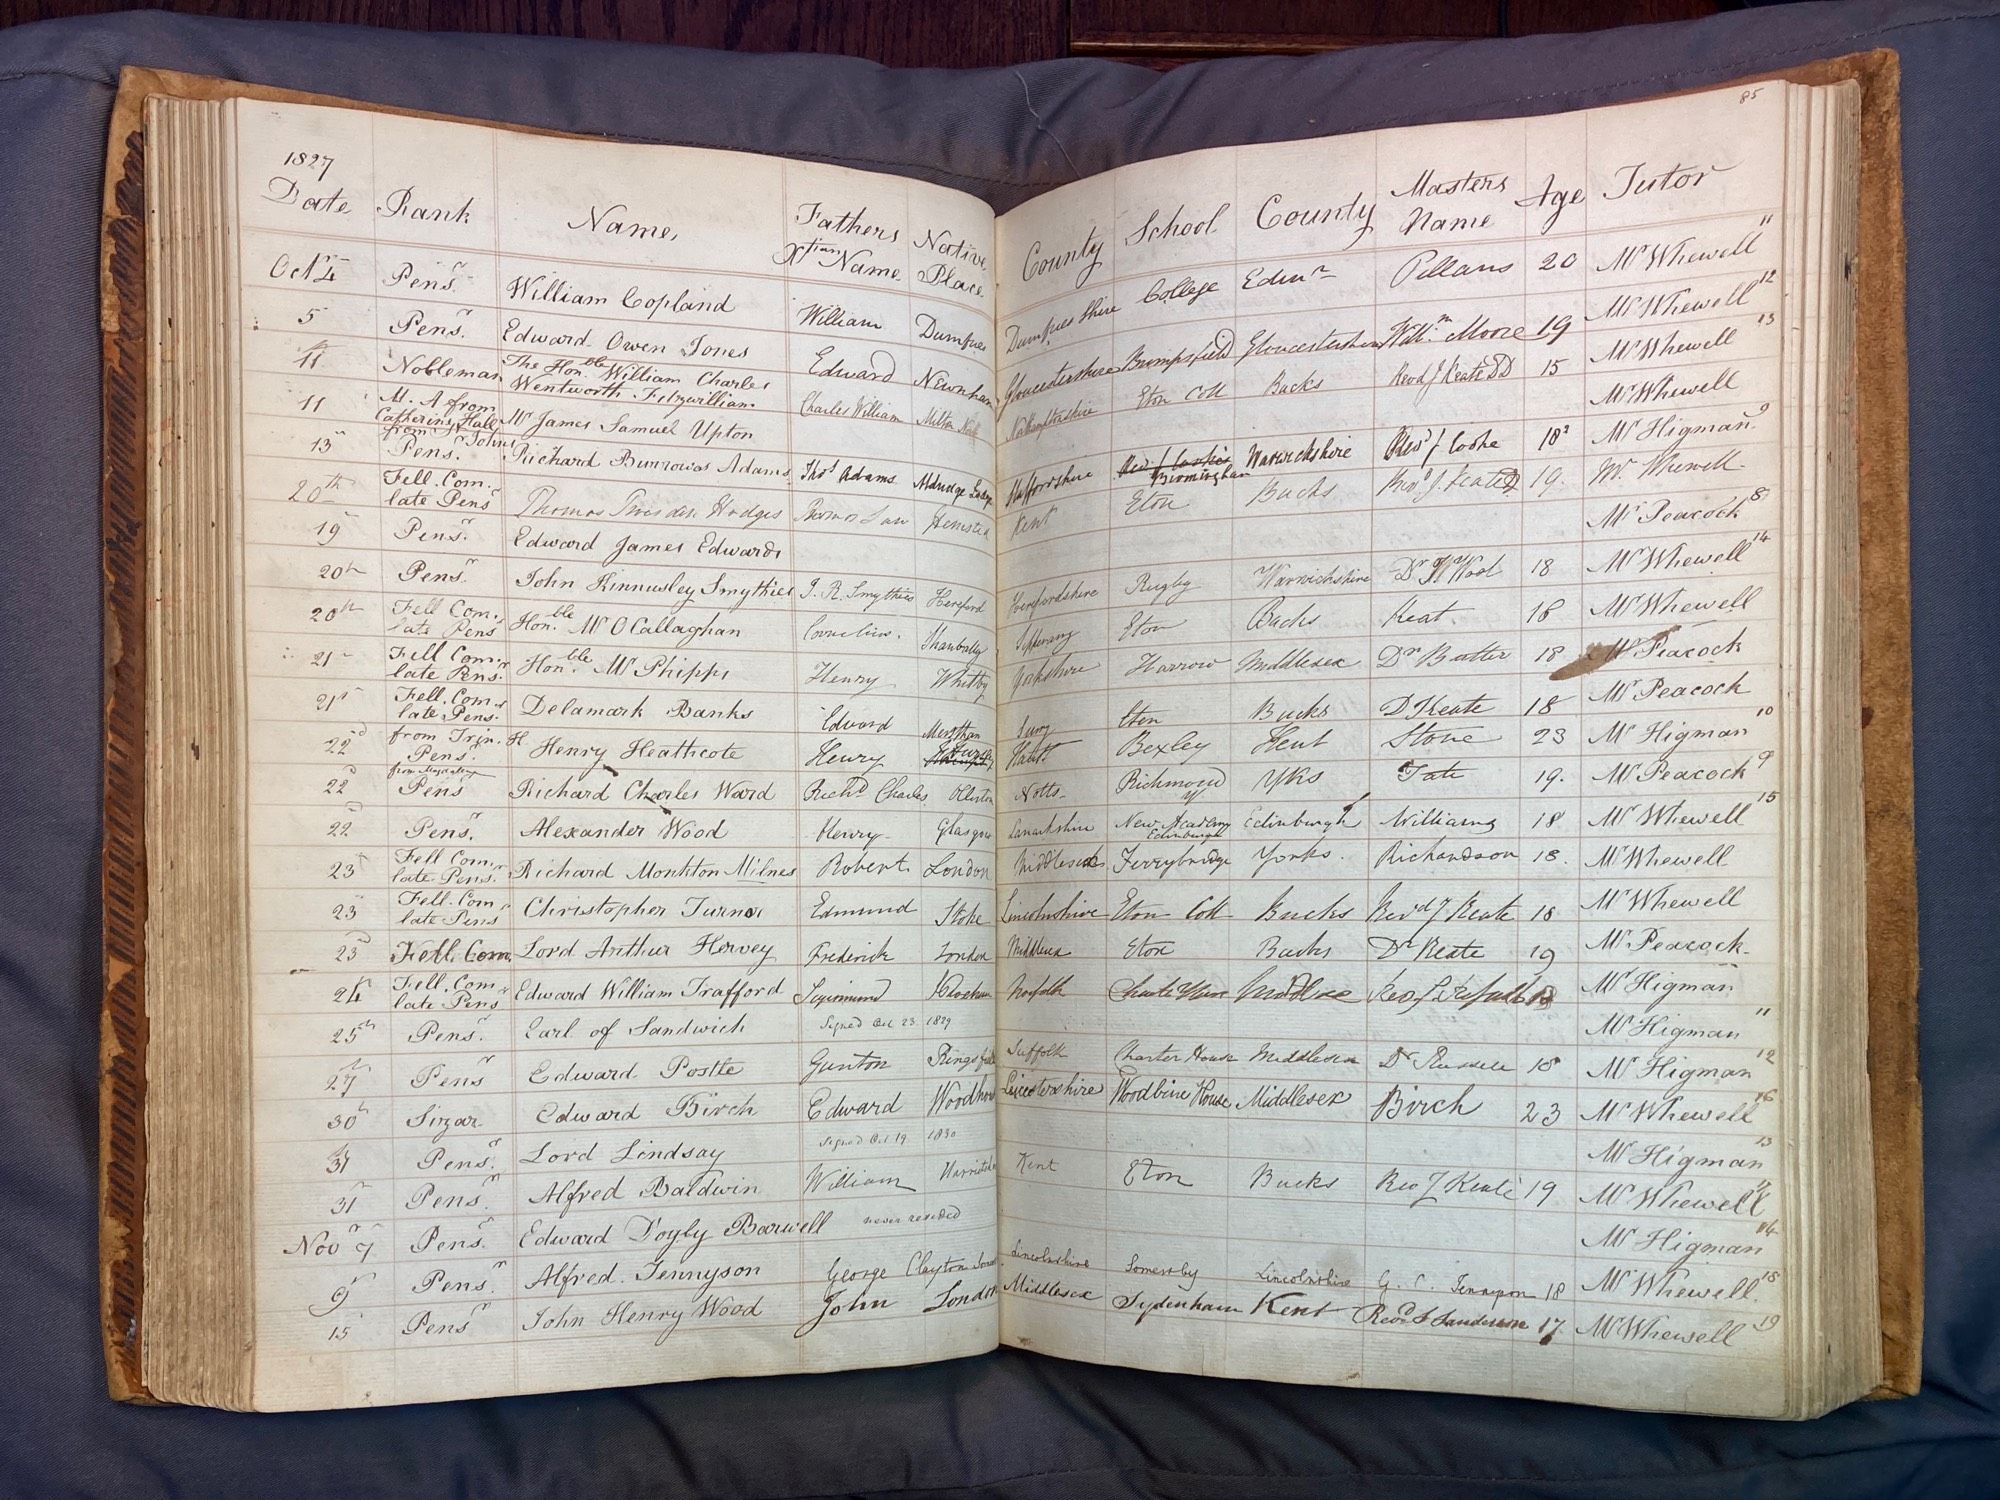 85
1827
Date Rank Name, Fathers Xtian Name Native Place County School County Masters Name Age Tutor
Oct 4 Pensr William Copland William Dumfries Dumfries shire College Edinr Pillans 20 Mr Whewell 11
5 Pensr. Edward Owen Jones Edward Newnham Gloucestershire Brimpsfield Gloucestershire Willm Moore 19 Mr Whewell 12
11 Nobleman The Honble William Charles Wentworth Fitzwilliam Charles William Milton Northamptonshire Eton Coll Bucks Revd J Keate DD 15 Mr Whewell 13
11 M. A from Catherine Hall Mr James Samuel Upton Mr Whewell
13 from St Johns Pensr Richard Burrowes Adams Thos Adams Aldridge Lodge Staffordshire Birmingham Warwickshire Revd J Cooke 18 Mr Higman 9
20th Fell. Com. late Pensr Thomas Twisden Hodges Thomas Law Hemsted Kent Eton Bucks Revd J. Keate 19. Mr. Whewell
19 Pensr. Edward James Edwards Mr Peacock 8
20th Pensr. John Kinnersley Smythies J. R. Smythies Hereford Herefordshire Rugby Warwickshire Dr Wool 18 Mr Whewell 14
20th Fell Com. late Pensr Honble Mr O Callaghan Cornelius. Shanbally Tipperary Eton Bucks Keat. 18 Mr Whewell
21st Fell Com. late Pensr. Honble Mr Phipps Henry Whitby Yorkshire Harrow Middlesex Dr Butler 18 Mr Peacock
21st Fell. Com. late Pensr. Delamark Banks Edward Merstham Surry Eton Bucks D Keate 18 Mr Peacock
22d from Trin. H Pensr. Henry Heathcote Henry Hursley Hants Bexley Kent Stone 23 Mr Higman 10
22d from Magdalen Pensr Richard Charles Ward Richd Charles Ollerton Notts Richmond Yks Tate 19. Mr Peacock 9
22d Pensr. Alexander Wood Henry Glasgow Lanarkshire New Academy Edinburgh Edinburgh Williams 18 Mr Whewell 15
23d Fell Com. late Pensr. Richard Monkton Milnes Robert London Middlesex Ferrybridge Yorks. Richardson 18. Mr Whewell
23d Fell. Com. late Pensr Christopher Turnor Edmund Stoke Lincolnshire Eton Coll Bucks Revd J Keate 18 Mr Whewell
23d Fell. Com. Lord Arthur Hervey Frederick London Middlesex Eton Bucks Dr Keate 19 Mr Peacock
24 Fell. Com. late Pensr Edward William Trafford Sigismund Wroxham Norfolk Charter House Middlesex Mr Higman
25th Pensr. Earl of Sandwich Signed Oct 23 1829 Mr Higman 11
27 Pensr Edward Postle Gunton Ringsfield Suffolk Charter House Middlesex Dr Russell 18 Mr Higman 12
30th Sizar Edward Birch Edward Woodhouse Leicestershire Woodbine House Middlesex Birch 23 Mr Whewell 16
31 Pensr. Lord Lindsay Signed Oct 19 1830 Mr Higman 13
31st Pensr. Alfred Baldwin William Harrietsham Kent Eton Bucks Rev J Keate 19 Mr Whewell 17
Novr 7 Pensr. Edward Doyly Barwell never resided Mr Higman 14
9th Pensr Alfred. Tennyson George Clayton Somersby Lincolnshire Somersby Lincolnshire G. C. Tennyson 18 Mr Whewell. 18
15 Pensr John Henry Wood John London Middlesex Sydenham Kent Revd 17 Mr Whewell 19